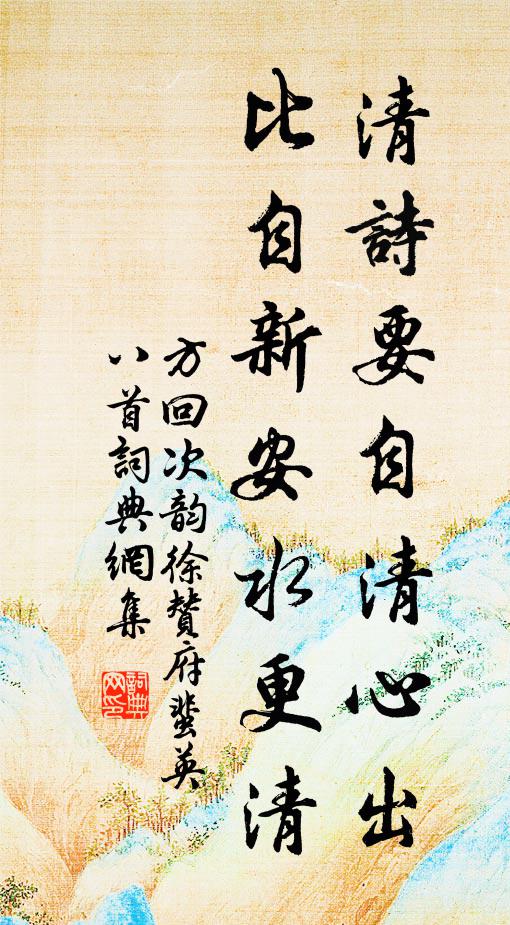 清詩要自清心出
比自新安水更清
方回次韵徐賛府蜚英
八首詞典網集
詞典網印